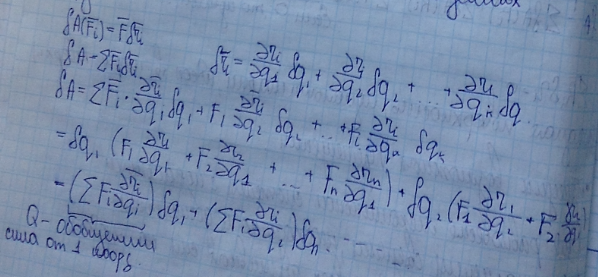 δA(F̄ᵢ)=F̄δr̄ᵢ
δA=ΣF̄ᵢδr̄ᵢ δr̄ᵢ = ∂rᵢ/∂q₁ δq₁ + ∂r̄ᵢ/∂q₂ δq₂ + ... + ∂rᵢ/∂qₙ δq
δA=ΣF̄ᵢ·∂r̄ᵢ/∂q₁ δq₁ + Fᵢ ∂r̄ᵢ/∂q₂ δq₂ + ... + Fᵢ ∂rᵢ/∂qₙ δqₙ
=δq₁ (F₁ ∂r₁/∂q₁ + F₂ ∂r₂/∂q₁ + ... + Fₙ ∂rₙ/∂q₁) + δq₂ (F₁ ∂r₁/∂q₂ + F₂
=(ΣF̄ᵢ ∂r̄ᵢ/∂q₁) δq₁ + (ΣFᵢ ∂r̄ᵢ/∂q₂)
Q - обобщенная
сила от 1 коорд